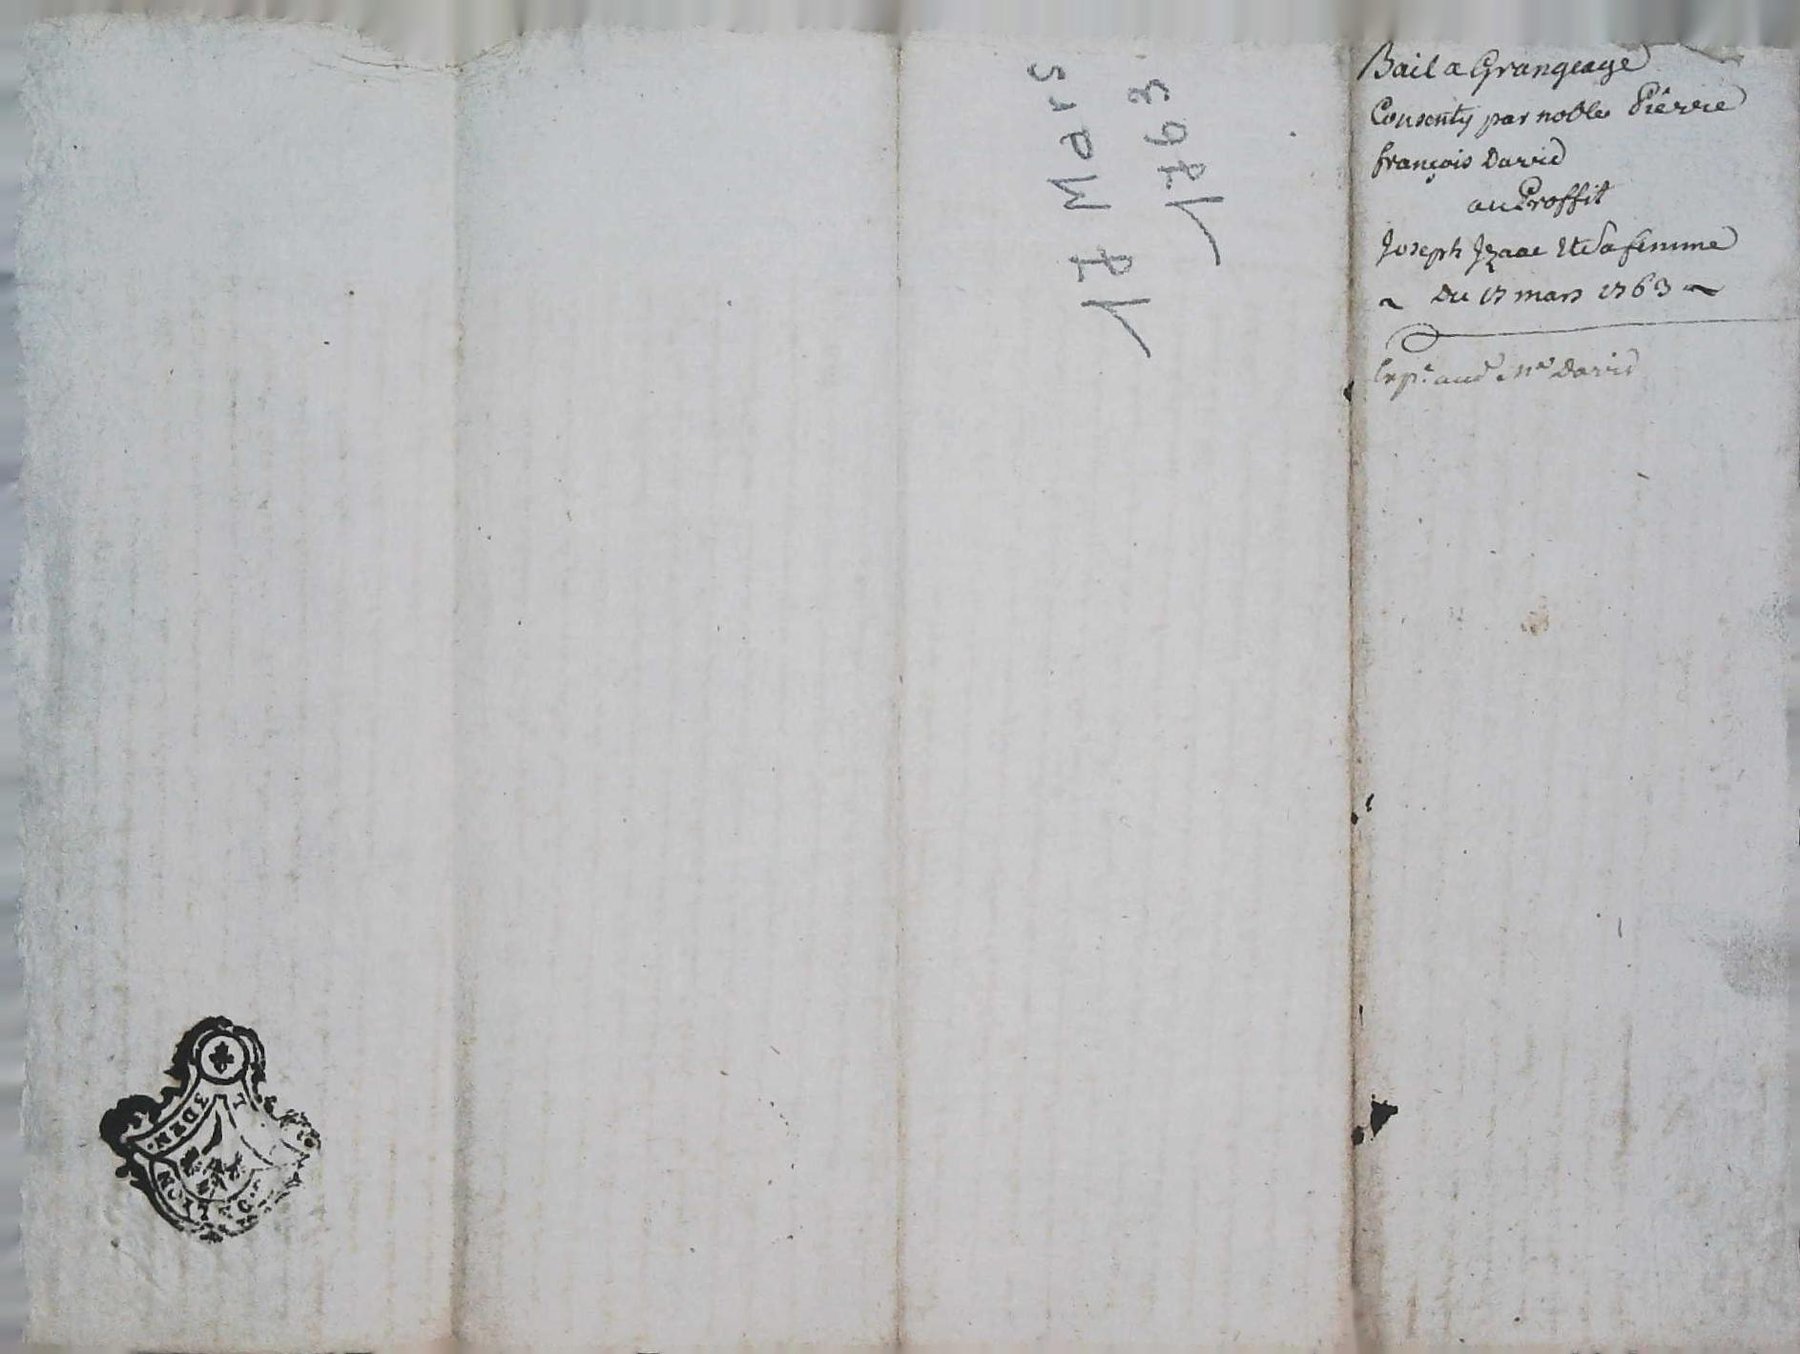 Bail a Grangeage
Consenty par noble Pierre
françois David
au Proffit
Joseph Izaac Et Sa femme
~ Du 17 mars 1763 ~
Exp.e aud. Nn.e David
17 Mars
1763
3 DEN.